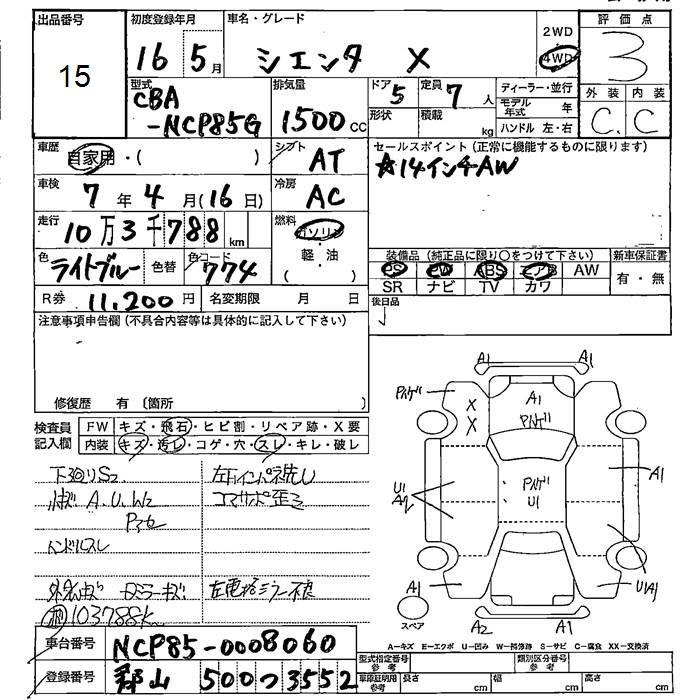 出品番号 初度登録年月 車名・グレード 2WD 評価点
15 16 5月 シエンタ X 4WD 3
型式 排気量 ドア 5 定員 7人 ディーラー・並行 外装 内装
CBA 形状 積載 kg モデル年式 年 C C
-NCP85G 1500cc ハンドル 左・右
車歴 自家用・( ) シフト AT セールスポイント(正常に機能するものに限ります)
☆14インチAW
車検 7年4月(16日) 冷房 AC
走行 10万3千788km 燃料 ガソリン
軽・油
( )
色 ライトブルー 色替 色コード 774 装備品(純正品に限り○をつけて下さい) 新車保証書
PS PW ABS エアB AW 有・無
SR ナビ TV カワ
R券 11,200円 名変期限 月 日 後日品
注意事項申告欄(不具合内容等は具体的に記入して下さい)
修復歴 有 〔箇所
検査員記入欄 FW キズ・飛石・ヒビ割・リペア跡・X要
内装 キズ・汚レ・コゲ・穴・スレ・キレ・破レ
下廻りS2
A.U.W2
ハンドルスレ
左電格ミラー不良
103788K
車台番号 NCP85-0008060
登録番号 郡山 500 つ 3552
A1 A1
A1
X
X
U1
U1 A1
A1
A1 U1A1
スペア A2 A1
A-キズ E-エクボ U-凹み W-補修跡 S-サビ C-腐食 XX-交換済
型式指定番号 参考 類別区分番号 参考
車庫証明用 参考 長さ cm 幅 cm 高さ cm